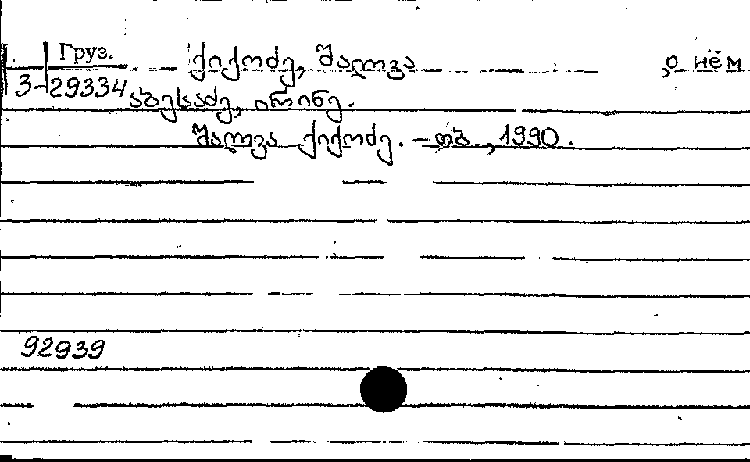 Груз. ქიქოძე, შალვა , о нём
3-29334 აბესაძე, ირინე.
შალვა ქიქოძე. – თბ., 1990.
92939